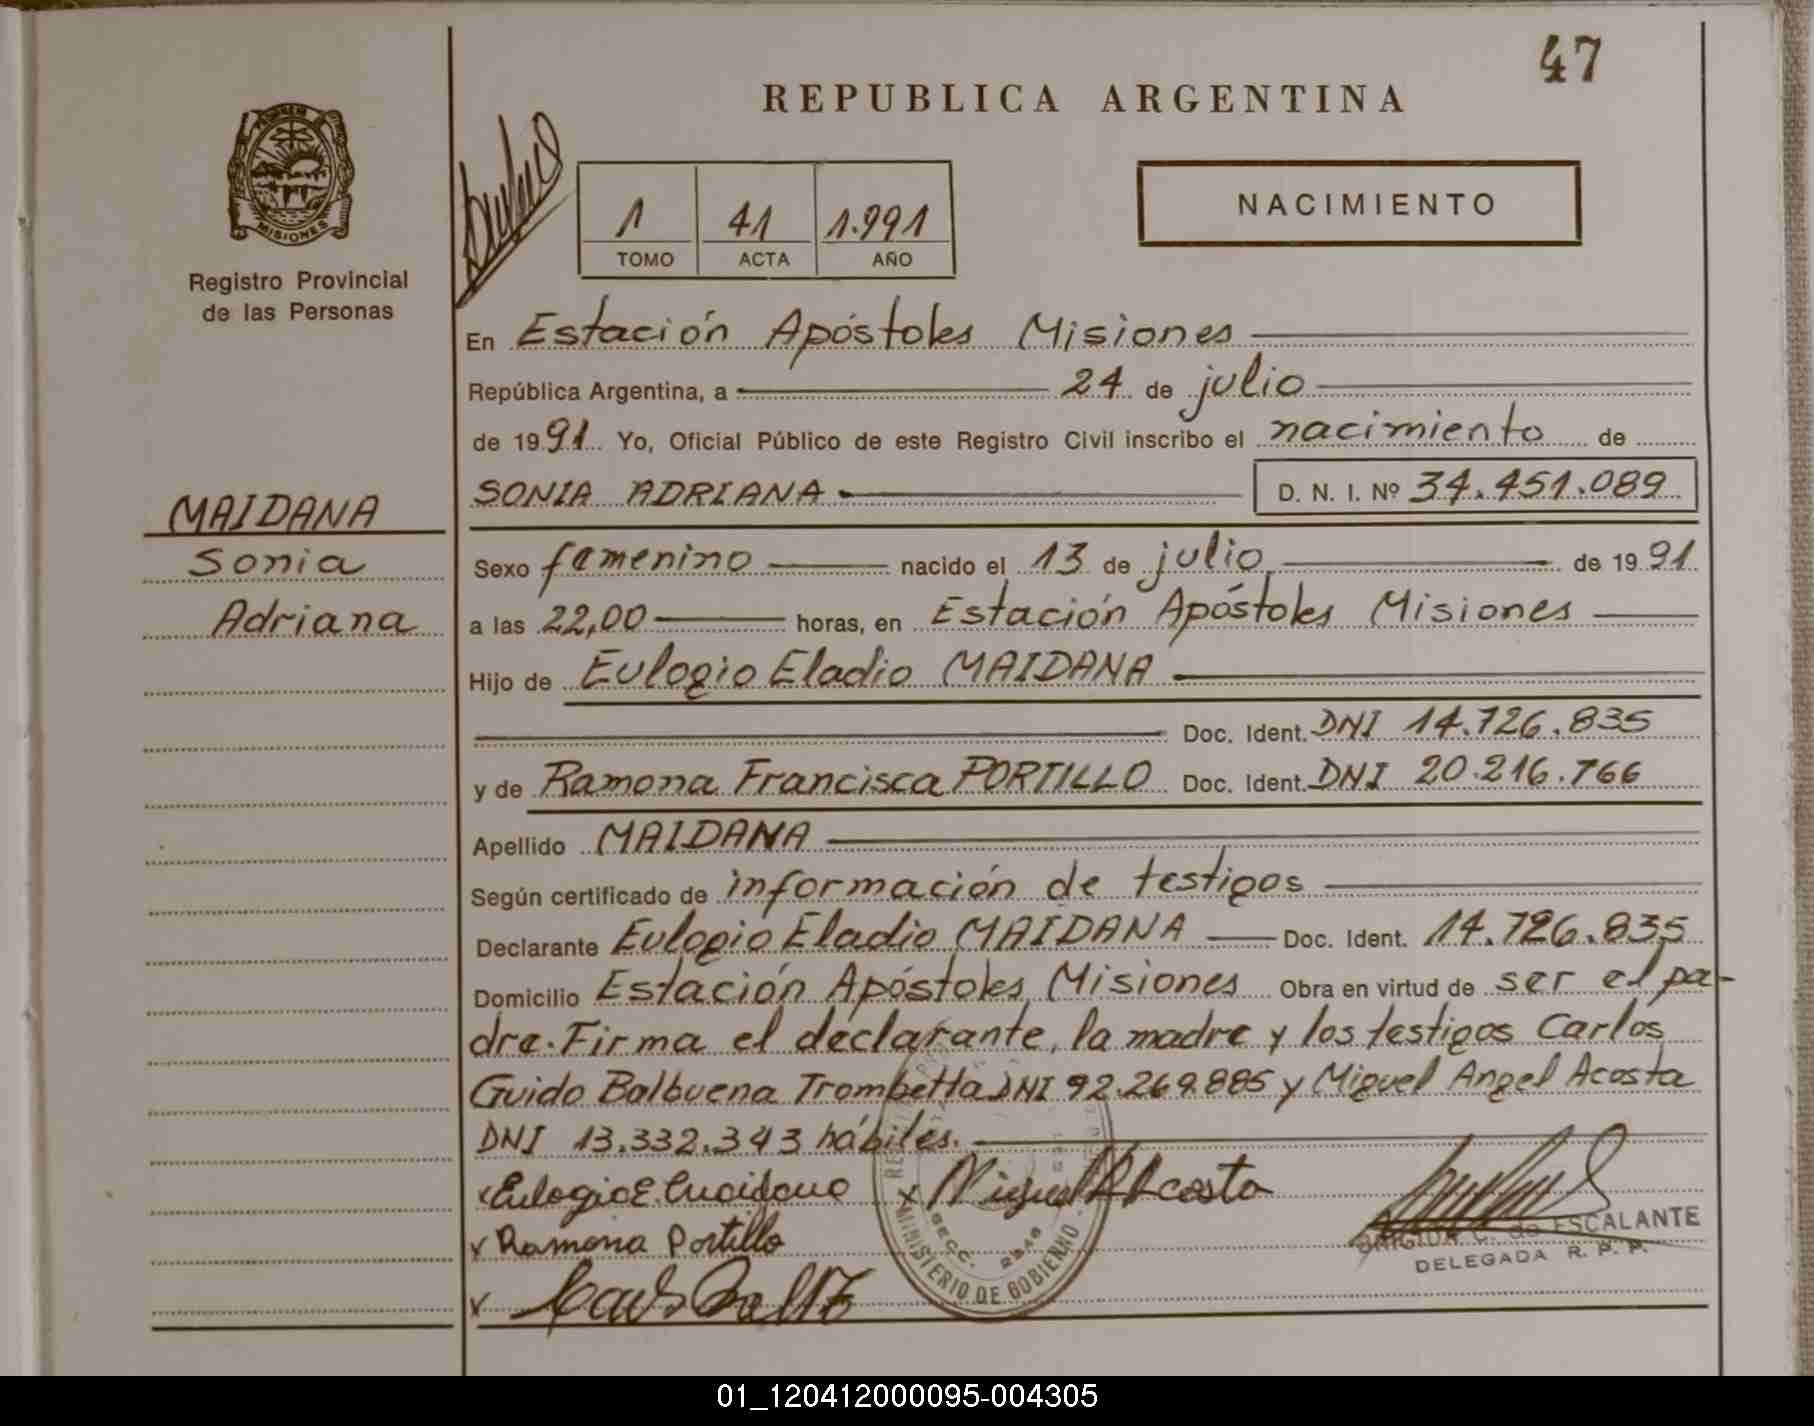 47
REPUBLICA ARGENTINA
MISIONES
Registro Provincial
de las Personas
1 41 1.991
TOMO ACTA AÑO
NACIMIENTO
En Estación Apóstoles Misiones
República Argentina, a 24 de julio
de 1991 Yo, Oficial Público de este Registro Civil inscribo el nacimiento de
SONIA ADRIANA D. N. I. Nº 34.451.089
MAIDANA
Sonia
Adriana
Sexo femenino nacido el 13 de julio de 1991
a las 22,00 horas, en Estación Apóstoles Misiones
Hijo de Eulogio Eladio MAIDANA
Doc. Ident. DNI 14.726.835
y de Ramona Francisca PORTILLO Doc. Ident. DNI 20.216.766
Apellido MAIDANA
Según certificado de información de testigos
Declarante Eulogio Eladio MAIDANA Doc. Ident. 14.726.835
Domicilio Estación Apóstoles Misiones Obra en virtud de ser el pa-
dre. Firma el declarante, la madre y los testigos Carlos
Guido Balbuena Trombetta DNI 92.269.885 y Miguel Angel Acosta
DNI 13.332.343 hábiles.
x Eulogio E. Maidana x Miguel A Acosta
x Ramona Portillo
x
MINISTERIO DE GOBIERNO
SECC.
BRIGIDA C. de ESCALANTE
DELEGADA R. P. P.
01_120412000095-004305